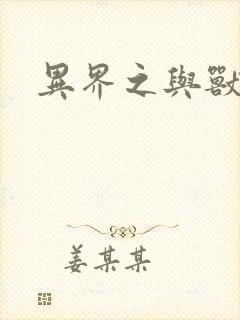 異界之與獸
姜某某